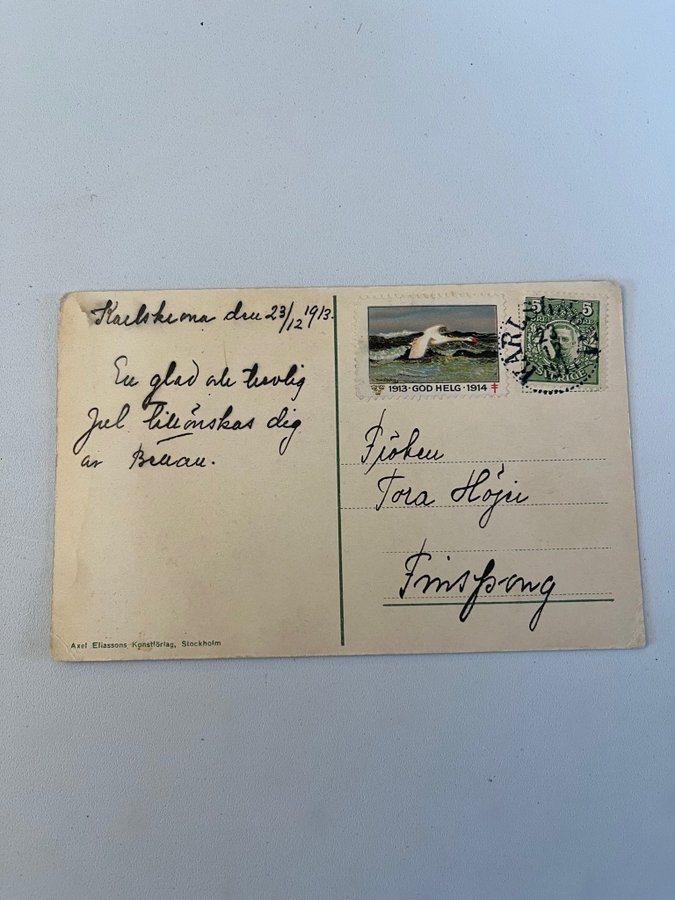 Karlskrona den 23/12 1913.
En glad och trevlig
Jul tillönskas dig
av
1913 · GOD HELG · 1914
5 5
SVERIGE
KARLSKRONA
23 12
Fröken
Tora Höjer
Finspong
Axel Eliassons Konstförlag, Stockholm